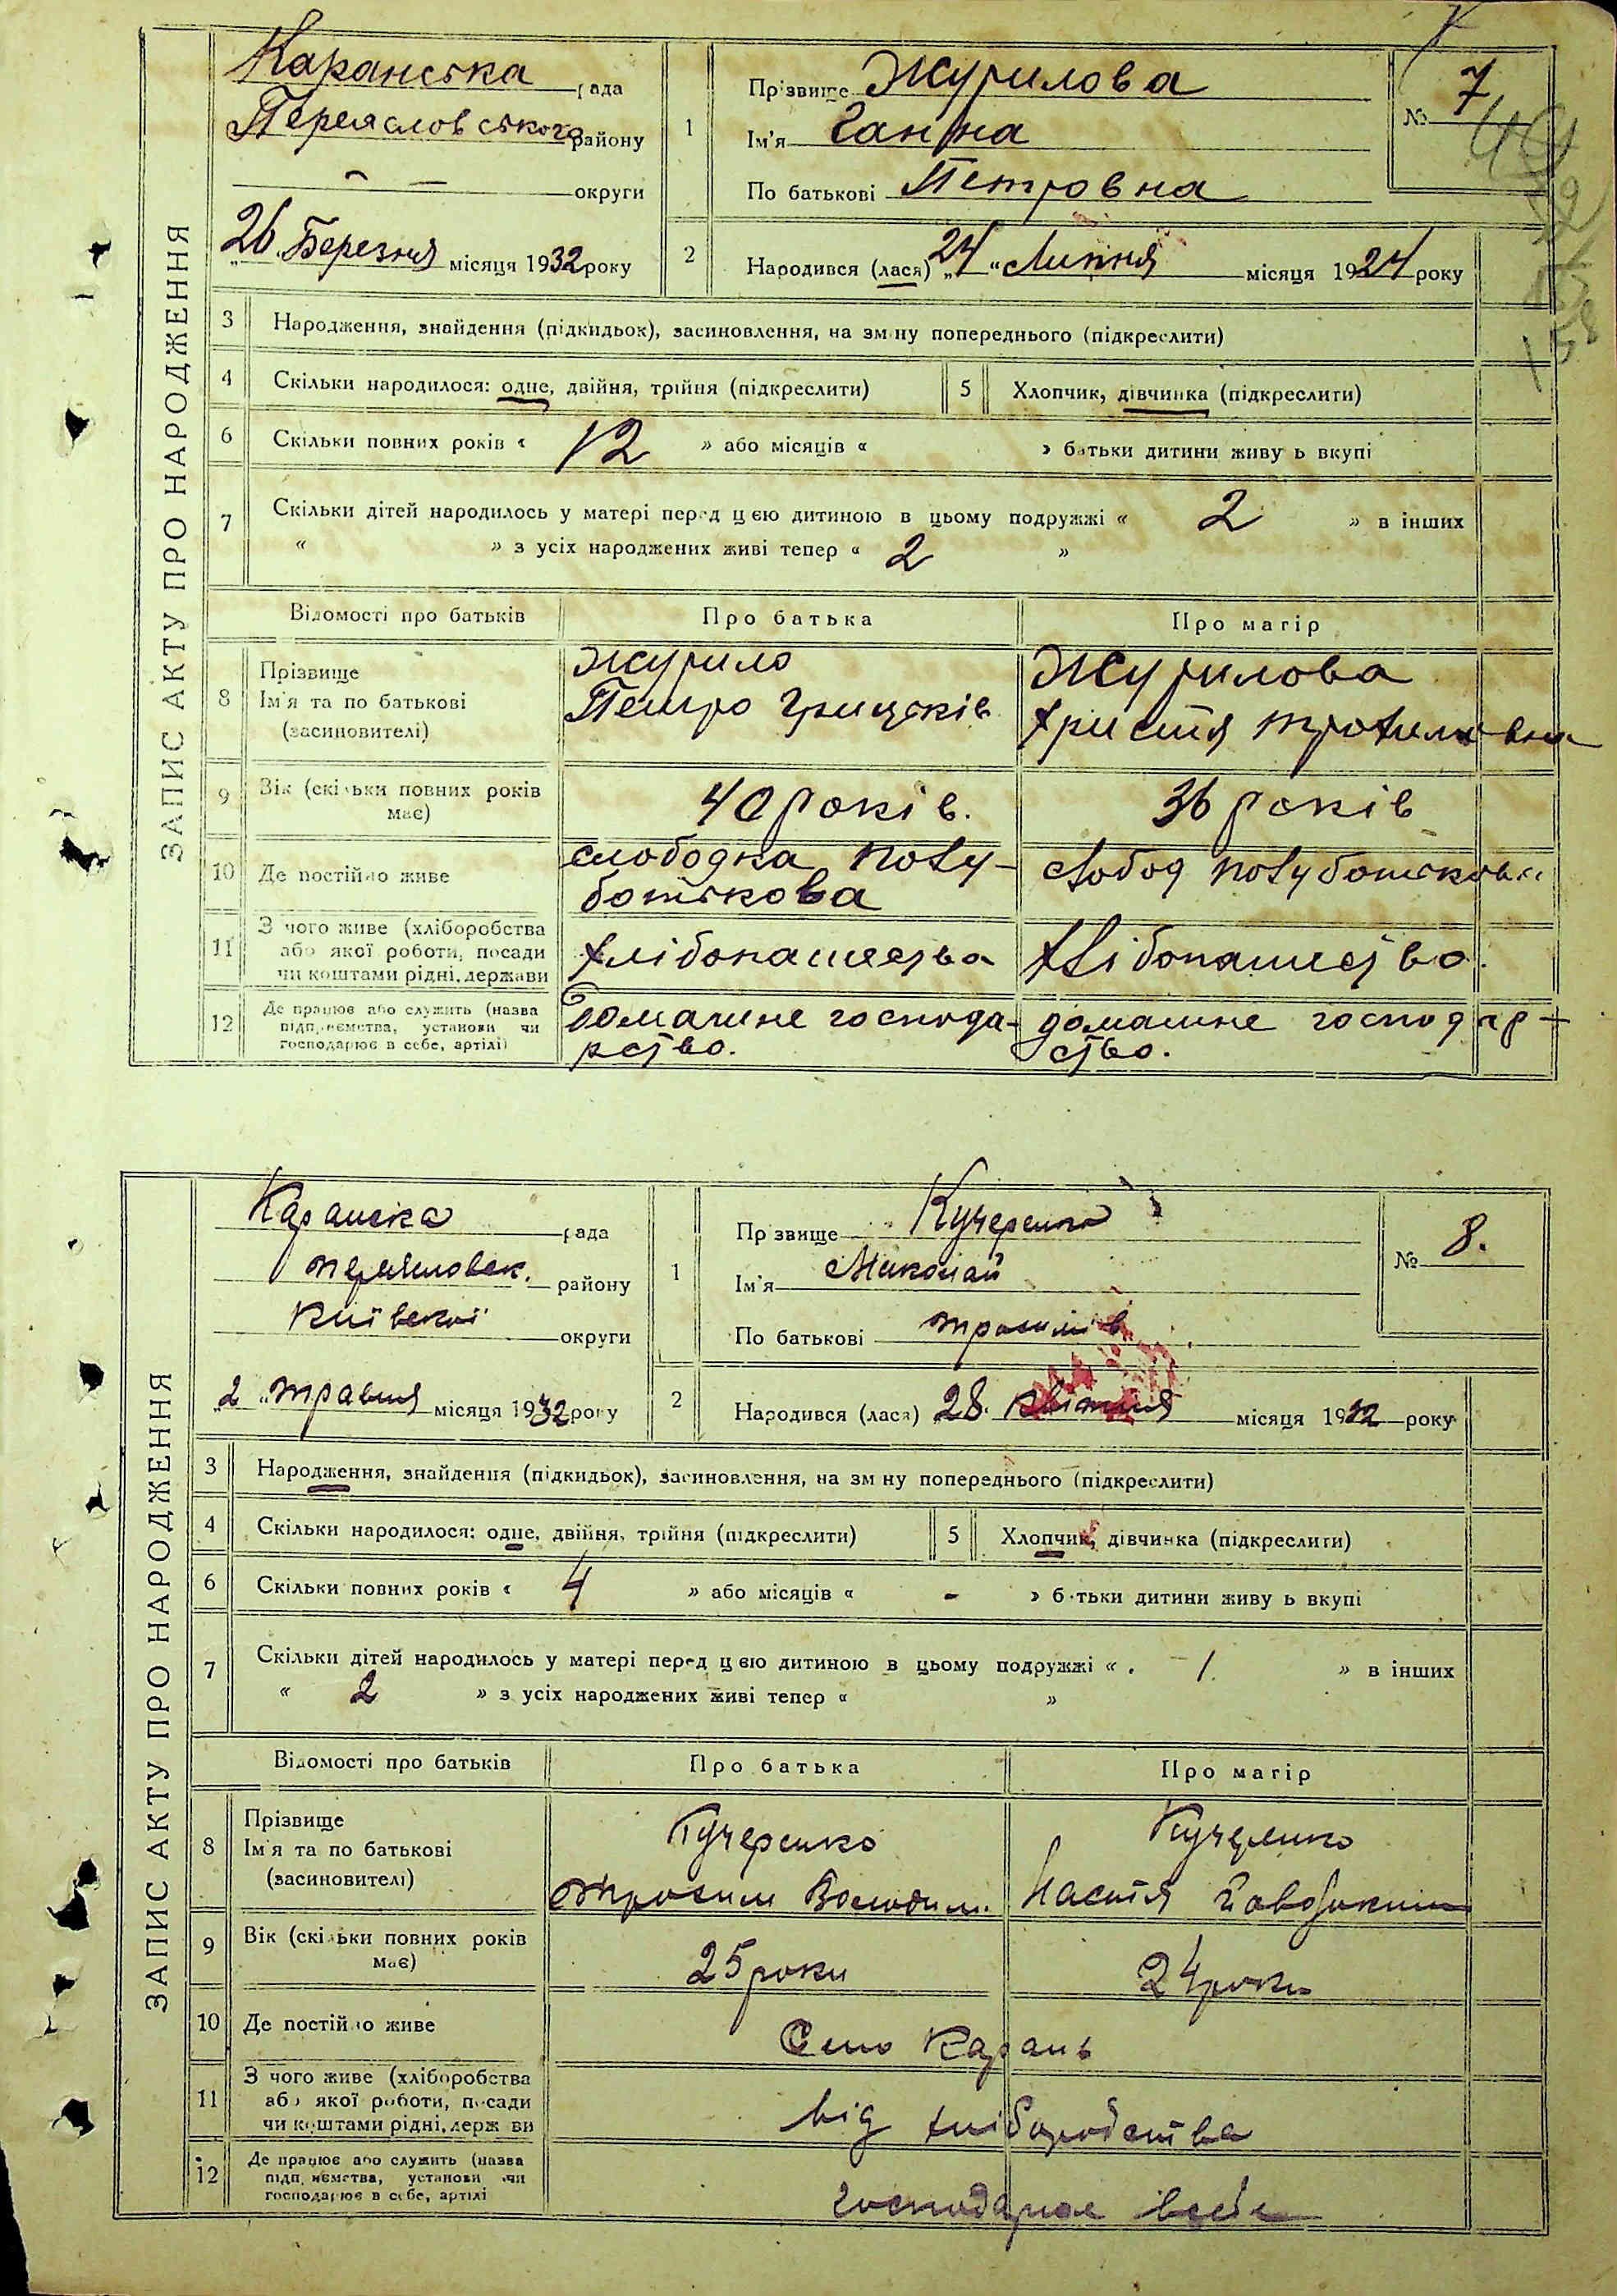 ЗАПИС АКТУ ПРО НАРОДЖЕННЯ
Каранська рада
Переясловського району
— — округи
„26 Березня місяця 1932 року
1
Прізвище Журилова
Ім'я Ганна
По батькові Петровна
№ 7
2
Народився (лася) „24 “ Липня місяця 1924 року
3 Народження, знайдення (підкидьок), засиновлення, на зміну попереднього (підкреслити)
4 Скільки народилося: одне, двійня, трійня (підкреслити) 5 Хлопчик, дівчинка (підкреслити)
6 Скільки повних років « 12 » або місяців « » батьки дитини живуть вкупі
7 Скільки дітей народилось у матері перед цією дитиною в цьому подружжі « 2 » в інших
« » з усіх народжених живі тепер « 2 »
Відомості про батьків Про батька Про матір
8 Прізвище
Ім'я та по батькові
(засиновителі)
Журило
Петро Грицьків
Журилова
Христя Трохимовна
9 Вік (скільки повних років має) 40 років. 36 років
10 Де постійно живе
слободка Полу-
ботькова
слобод Полуботькова
11 З чого живе (хліборобства
або якої роботи, посади
чи коштами рідні, держави
хлібопашество хлібопашество.
12 Де працює або служить (назва
підприємства, установи чи
господарює в себе, артілі)
Домашне господа-
рство.
домашне господар-
ство.
ЗАПИС АКТУ ПРО НАРОДЖЕННЯ
Каранська рада
Переяславськ. району
Київської округи
„2 “ травня місяця 1932 року
1
Прізвище Кучеренко
Ім'я Миколай
По батькові Трохимів
№ 8.
2
Народився (лася) 28. квітня місяця 1932 року
3 Народження, знайдення (підкидьок), засиновлення, на зміну попереднього (підкреслити)
4 Скільки народилося: одне, двійня, трійня (підкреслити) 5 Хлопчик, дівчинка (підкреслити)
6 Скільки повних років « 4 » або місяців « - » батьки дитини живуть вкупі
7 Скільки дітей народилось у матері перед цією дитиною в цьому подружжі « 1 » в інших
« 2 » з усіх народжених живі тепер « »
Відомості про батьків Про батька Про матір
8 Прізвище
Ім'я та по батькові
(засиновителі)
Кучеренко
Трохим Володим.
Кучеренко
Настя
9 Вік (скільки повних років має) 25 роки 24 роки
10 Де постійно живе Село Карань
11 З чого живе (хліборобства
або якої роботи, посади
чи коштами рідні, держави
від хліборобства
12 Де працює або служить (назва
підприємства, установи чи
господарює в себе, артілі
господарює в себе